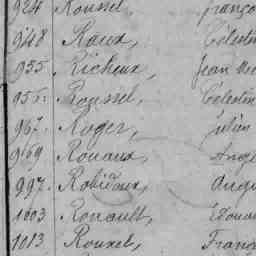 924 Roussel, Franço
948 Raux, Célestin
955 Richeux, Jean
956. Roussel, Célestin
967. Roger, Julien
969 Rouaux, Ange
997. Robidoux, Augu
1003 Renault, Edoua
1013 Rouxel, Franc